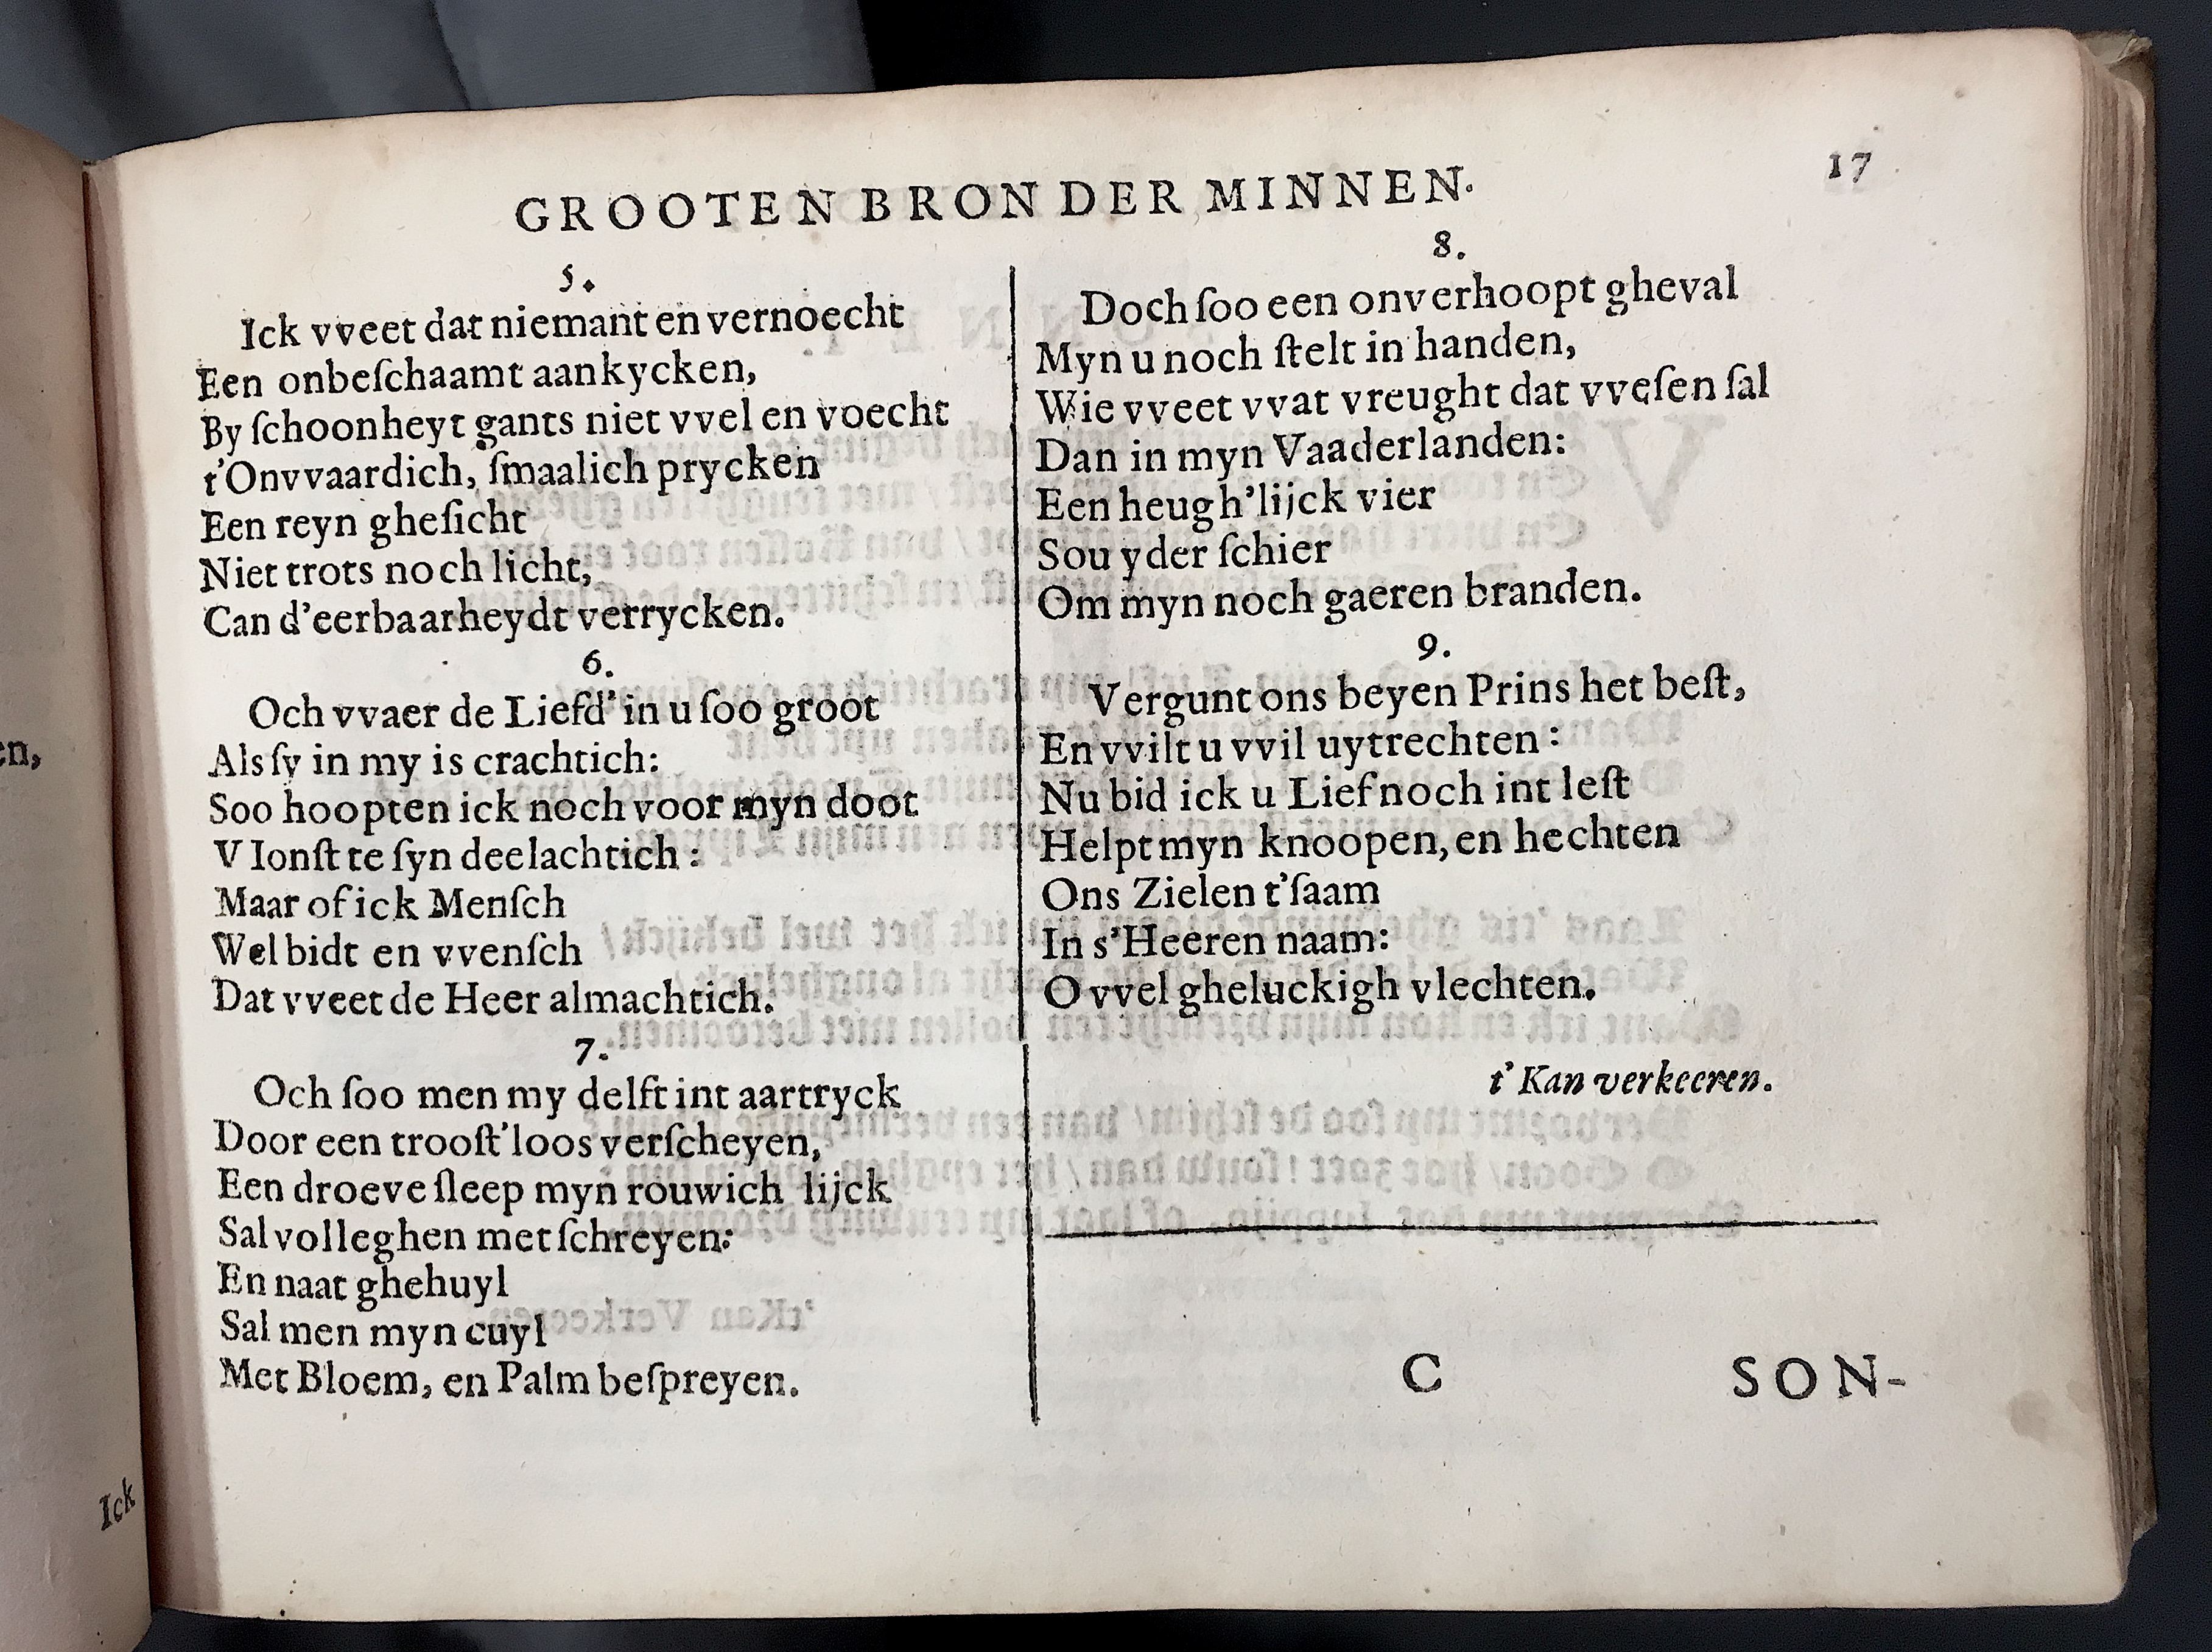 GROOTEN BRON DER MINNEN.
17
5.
Ick vveet dat niemant en vernoecht
Een onbeſchaamt aankycken,
By ſchoonheyt gants niet vvel en voecht
t'Onvvaardich, ſmaalich prycken
Een reyn gheſicht
Niet trots noch licht,
Can d'eerbaarheydt verrycken.
6.
Och vvaer de Liefd' in u ſoo groot
Als ſy in my is crachtich:
Soo hoopten ick noch voor myn doot
V Ionſt te ſyn deelachtich:
Maar of ick Menſch
Wel bidt en vvenſch
Dat vveet de Heer almachtich.
7.
Och ſoo men my delft int aartryck
Door een trooſt'loos verſcheyen,
Een droeve ſleep myn rouwich lijck
Sal volleghen met ſchreyen:
En naat ghehuyl
Sal men myn cuyl
Met Bloem, en Palm beſpreyen.
8.
Doch ſoo een onverhoopt gheval
Myn u noch ſtelt in handen,
Wie vveet vvat vreught dat vveſen ſal
Dan in myn Vaaderlanden:
Een heugh'lijck vier
Sou yder ſchier
Om myn noch gaeren branden.
9.
Vergunt ons beyen Prins het beſt,
En vvilt u vvil uytrechten:
Nu bid ick u Lief noch int leſt
Helpt myn knoopen, en hechten
Ons Zielen t'ſaam
In s'Heeren naam:
O vvel gheluckigh vlechten.
t' Kan verkeeren.
C
SON-
en,
Ick